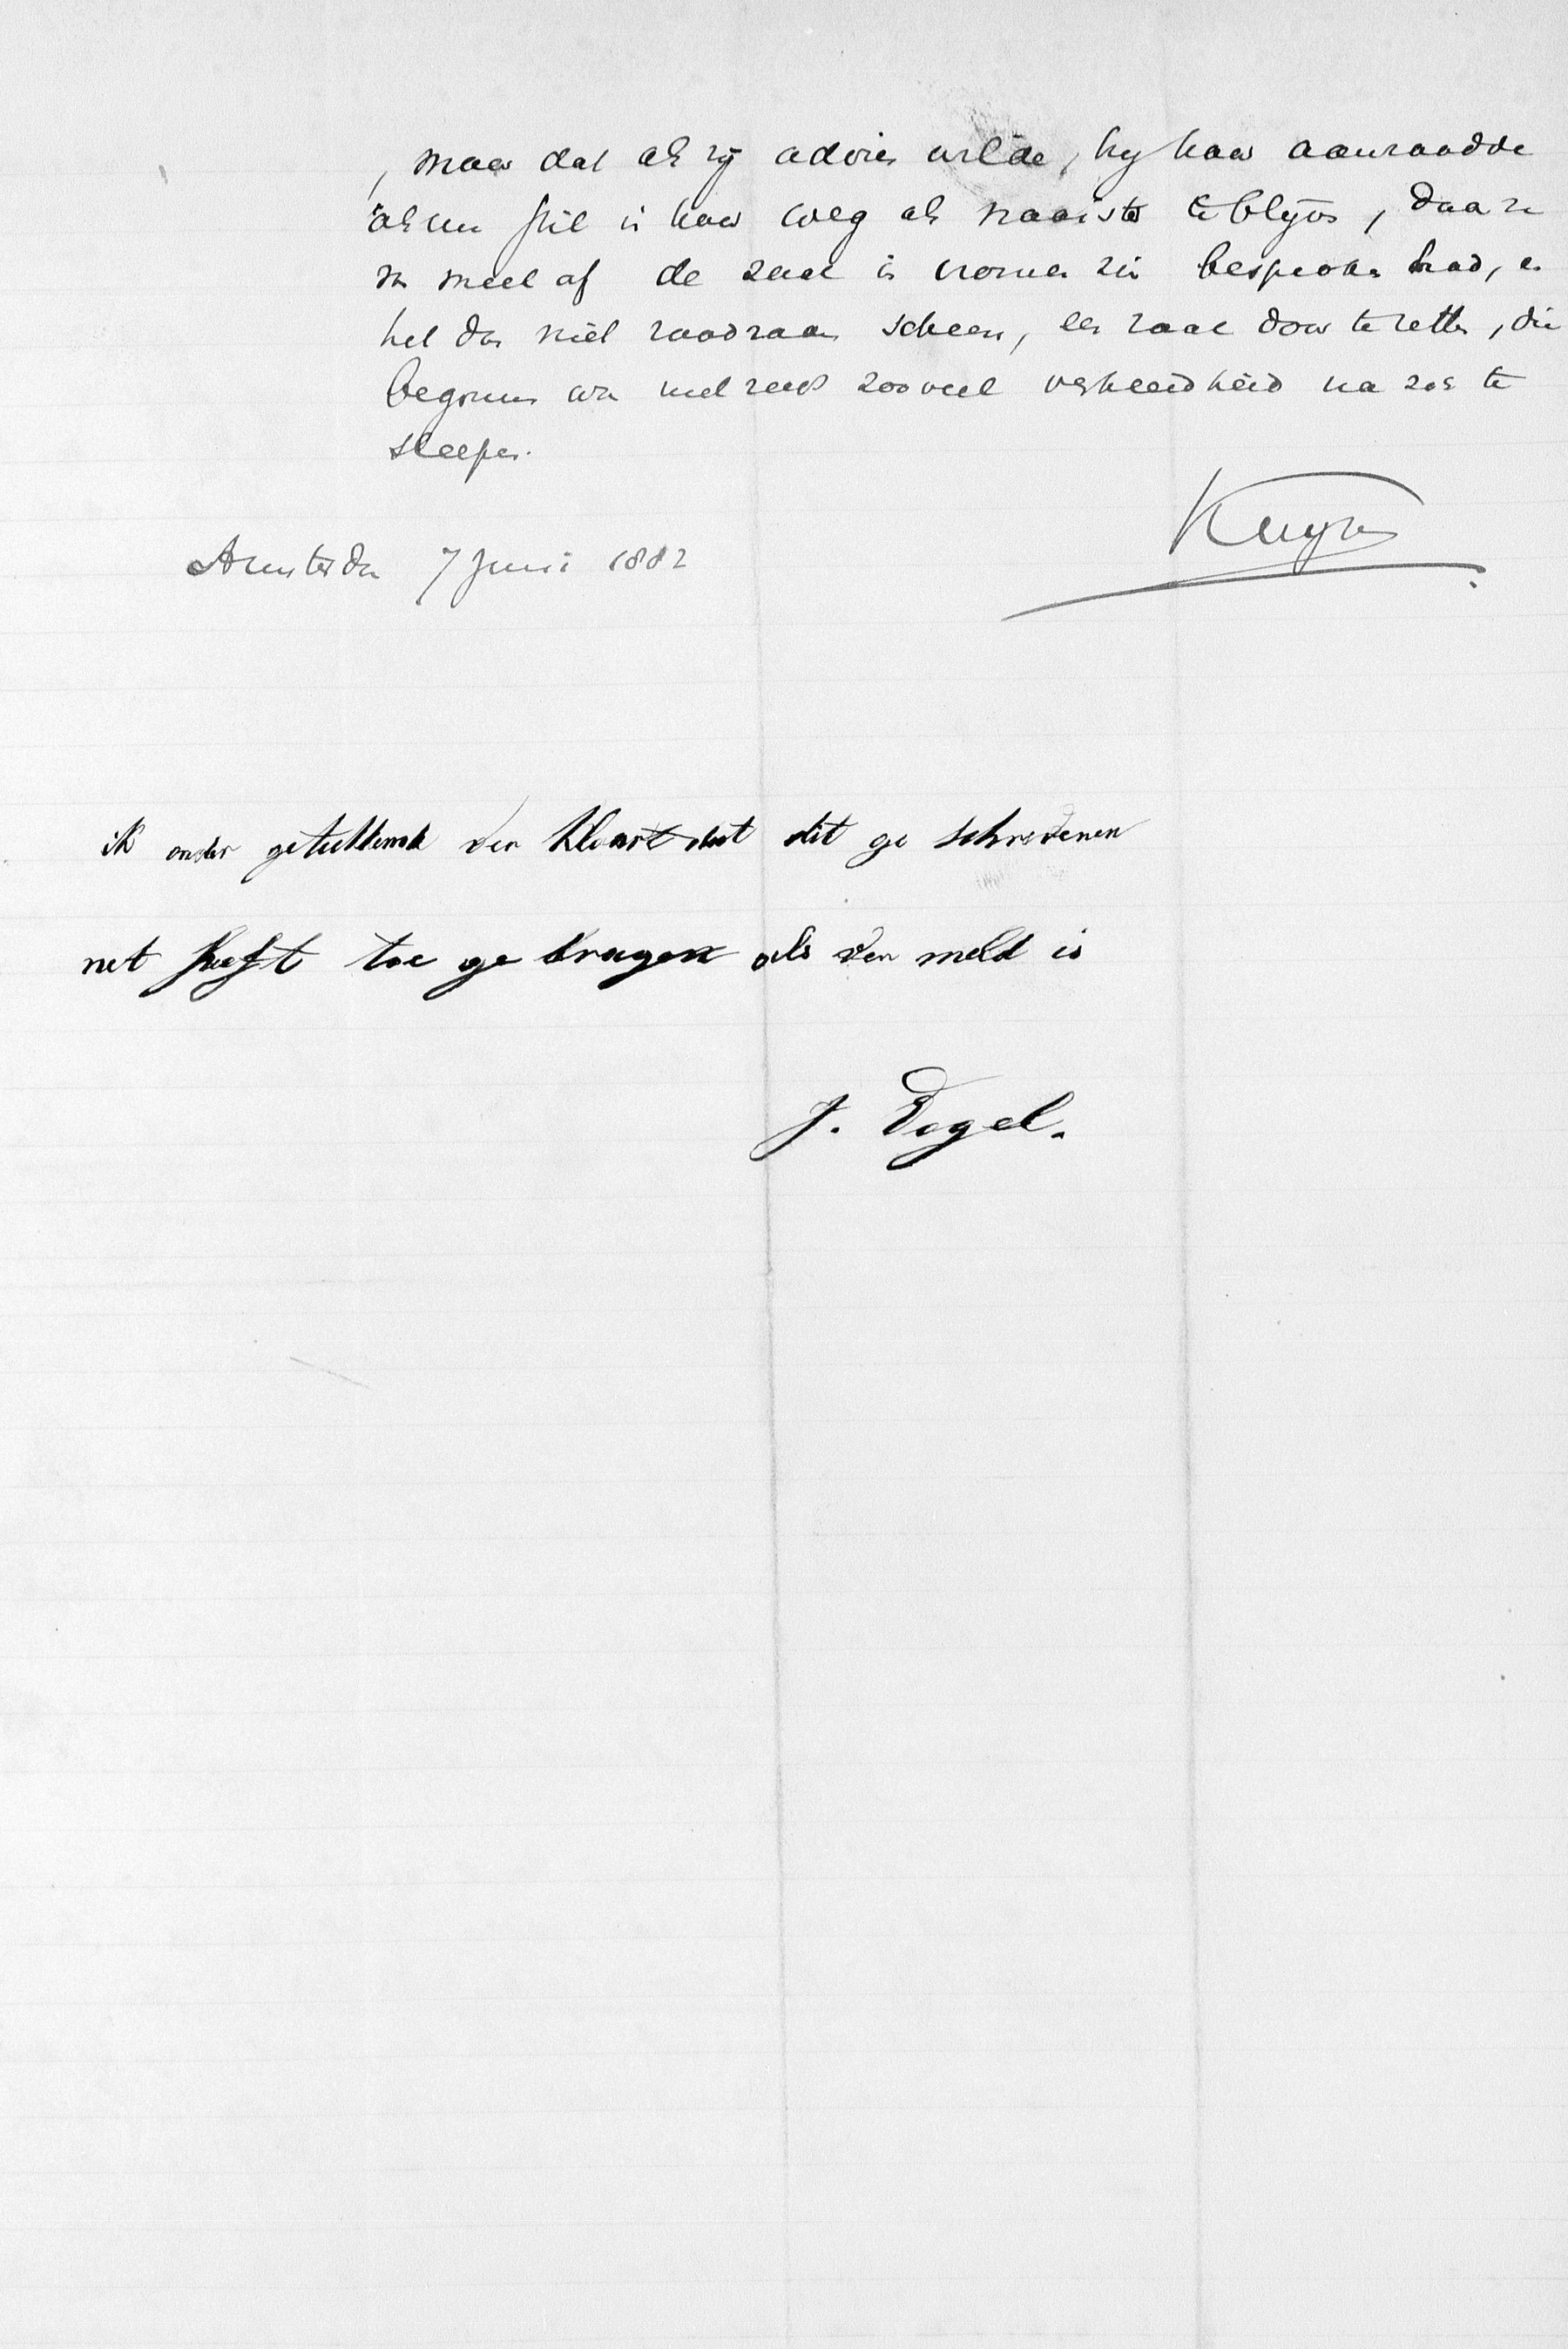 , maar dat als zij advies wilde, hij haar aanraadde
alsnu stil in haar weg als naaister te blijven, daar ze
van meet af de zaak in vromen zin besproken had, en
het dan niet raadzaam scheen, een zaak door te zetten, die
begonnen was met reeds zooveel verkeerdheid na zich te
sleepen.
Kuyper
Amsterdam 7 Juni 1882
ik onder geteekende ver klaart dat dit ge schrevenen
net heeft toe ge dragen als ver meld is
J. Vogel.